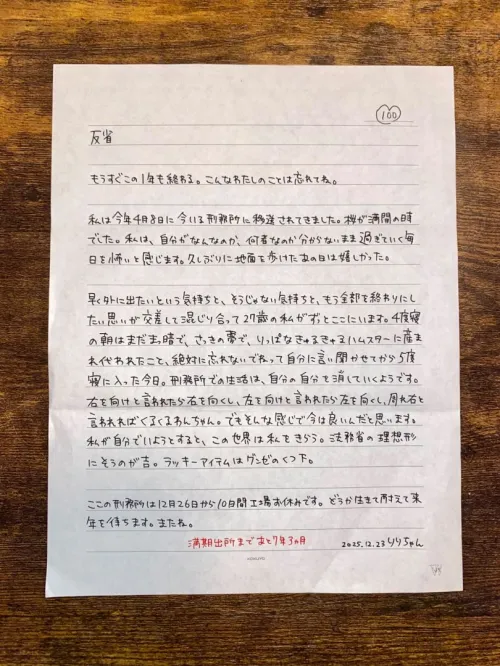 100
反省
もうすぐこの1年も終わる。こんなわたしのことは忘れてね。
私は今年4月8日に今いる刑務所に移送されてきました。桜が満開の時
でした。私は、自分がなんなのか、何者なのか分からないまま過ぎていく毎
日を怖いと感じます。久しぶりに地面を歩けたあの日は嬉しかった。
早く外に出たいという気持ちと、そうじゃない気持ちと、もう全部を終わりにし
たい思いが交差して混じり合って27歳の私がずっとここにいます。4度寝
の朝はまだまっ暗で、さっきの夢で、りっぱなきゅるきゅるハムスターに産ま
れ代われたこと、絶対に忘れないでねって自分に言い聞かせてから5度
寝に入った今日。刑務所での生活は、自分の自分も消していくようです。
右を向けと言われたら右を向くし、左を向けと言われたら左を向くし、周れ右と
言われればくるくるわんちゃん。でもそんな感じで今は良いんだと思います。
私が自分でいようとすると、この世界は私をきらう。法務省の理想形
にそうのが吉。ラッキーアイテムはグンゼのくつ下。
ここの刑務所は12月26日から10日間工場お休みです。どうか生きて耐えて来
年を待ちます。またね。
満期出所まであと7年3ヵ月
2025.12.23 りりちゃん